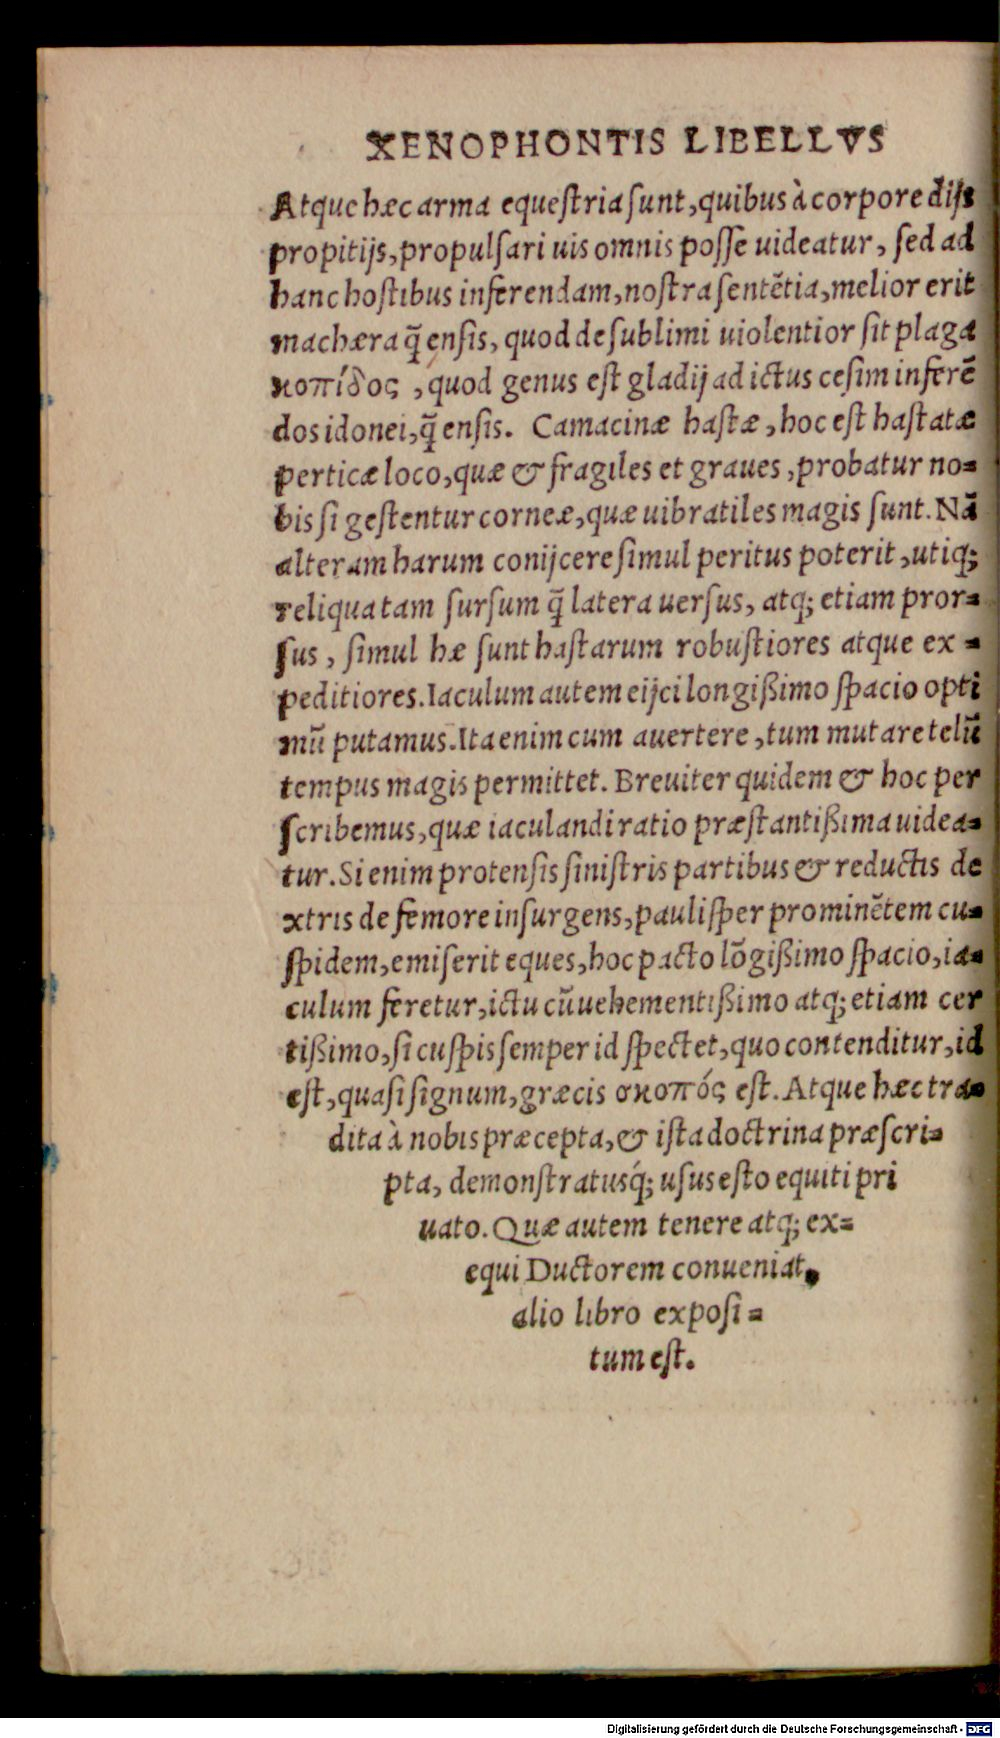 XENOPHONTIS LIBELLVS
Atque hæc arma equeſtria ſunt, quibus à corpore dijs
propitijs, propulſari uis omnis poſſe uideatur, ſed ad
hanc hoſtibus inferendam, noſtra ſentẽtia, melior erit
machæra q̃ enſis, quod de ſublimi uiolentior ſit plaga
κοπίδος, quod genus eſt gladij ad ictus ceſim inferẽ
dos idonei, q̃ enſis. Camacinæ haſtæ, hoc eſt haſtatæ
perticæ loco, quæ & fragiles et graues, probatur no=
bis ſi geſtentur corneæ, quæ uibratiles magis ſunt. Nã
alteram harum conijcere ſimul peritus poterit, utiq;
reliqua tam ſurſum q̃ latera uerſus, atq; etiam pror=
ſus, ſimul hæ ſunt haſtarum robuſtiores atque ex=
peditiores. Iaculum autem eijci longißimo ſpacio opti
mũ putamus. Ita enim cum auertere, tum mutare telũ
tempus magis permittet. Breuiter quidem & hoc per
ſcribemus, quæ iaculandi ratio præſtantißima uidea=
tur. Si enim protenſis siniſtris partibus & reductis de
xtris de femore inſurgens, pauliſper prominẽtem cu=
ſpidem, emiſerit eques, hoc pacto lõgißimo ſpacio, ia=
culum feretur, ictu cũ uehementißimo atq; etiam cer
tißimo, ſi cuſpis ſemper id ſpectet, quo contenditur, id
eſt, quaſi ſignum, græcis σκοπός eſt. Atque hæc tra=
dita à nobis præcepta, & iſta doctrina præſcri=
pta, demonſtratusq́; uſus eſto equiti pri
uato. Quæ autem tenere atq; ex=
equi Ductorem conueniat,
alio libro expoſi=
tum eſt.
Digitalisierung gefördert durch die Deutsche Forschungsgemeinschaft - DFG